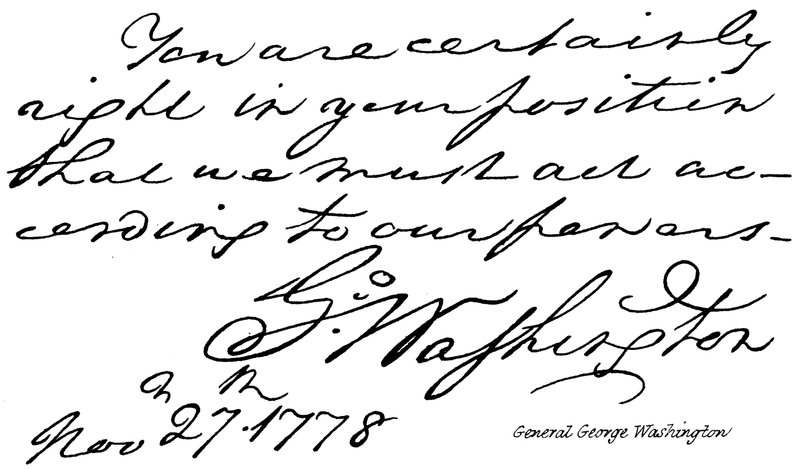 You are certainly
right in your position
that we must act ac-
cording to our powers-
Go. Washington
Novr 27th. 1778
General George Washington